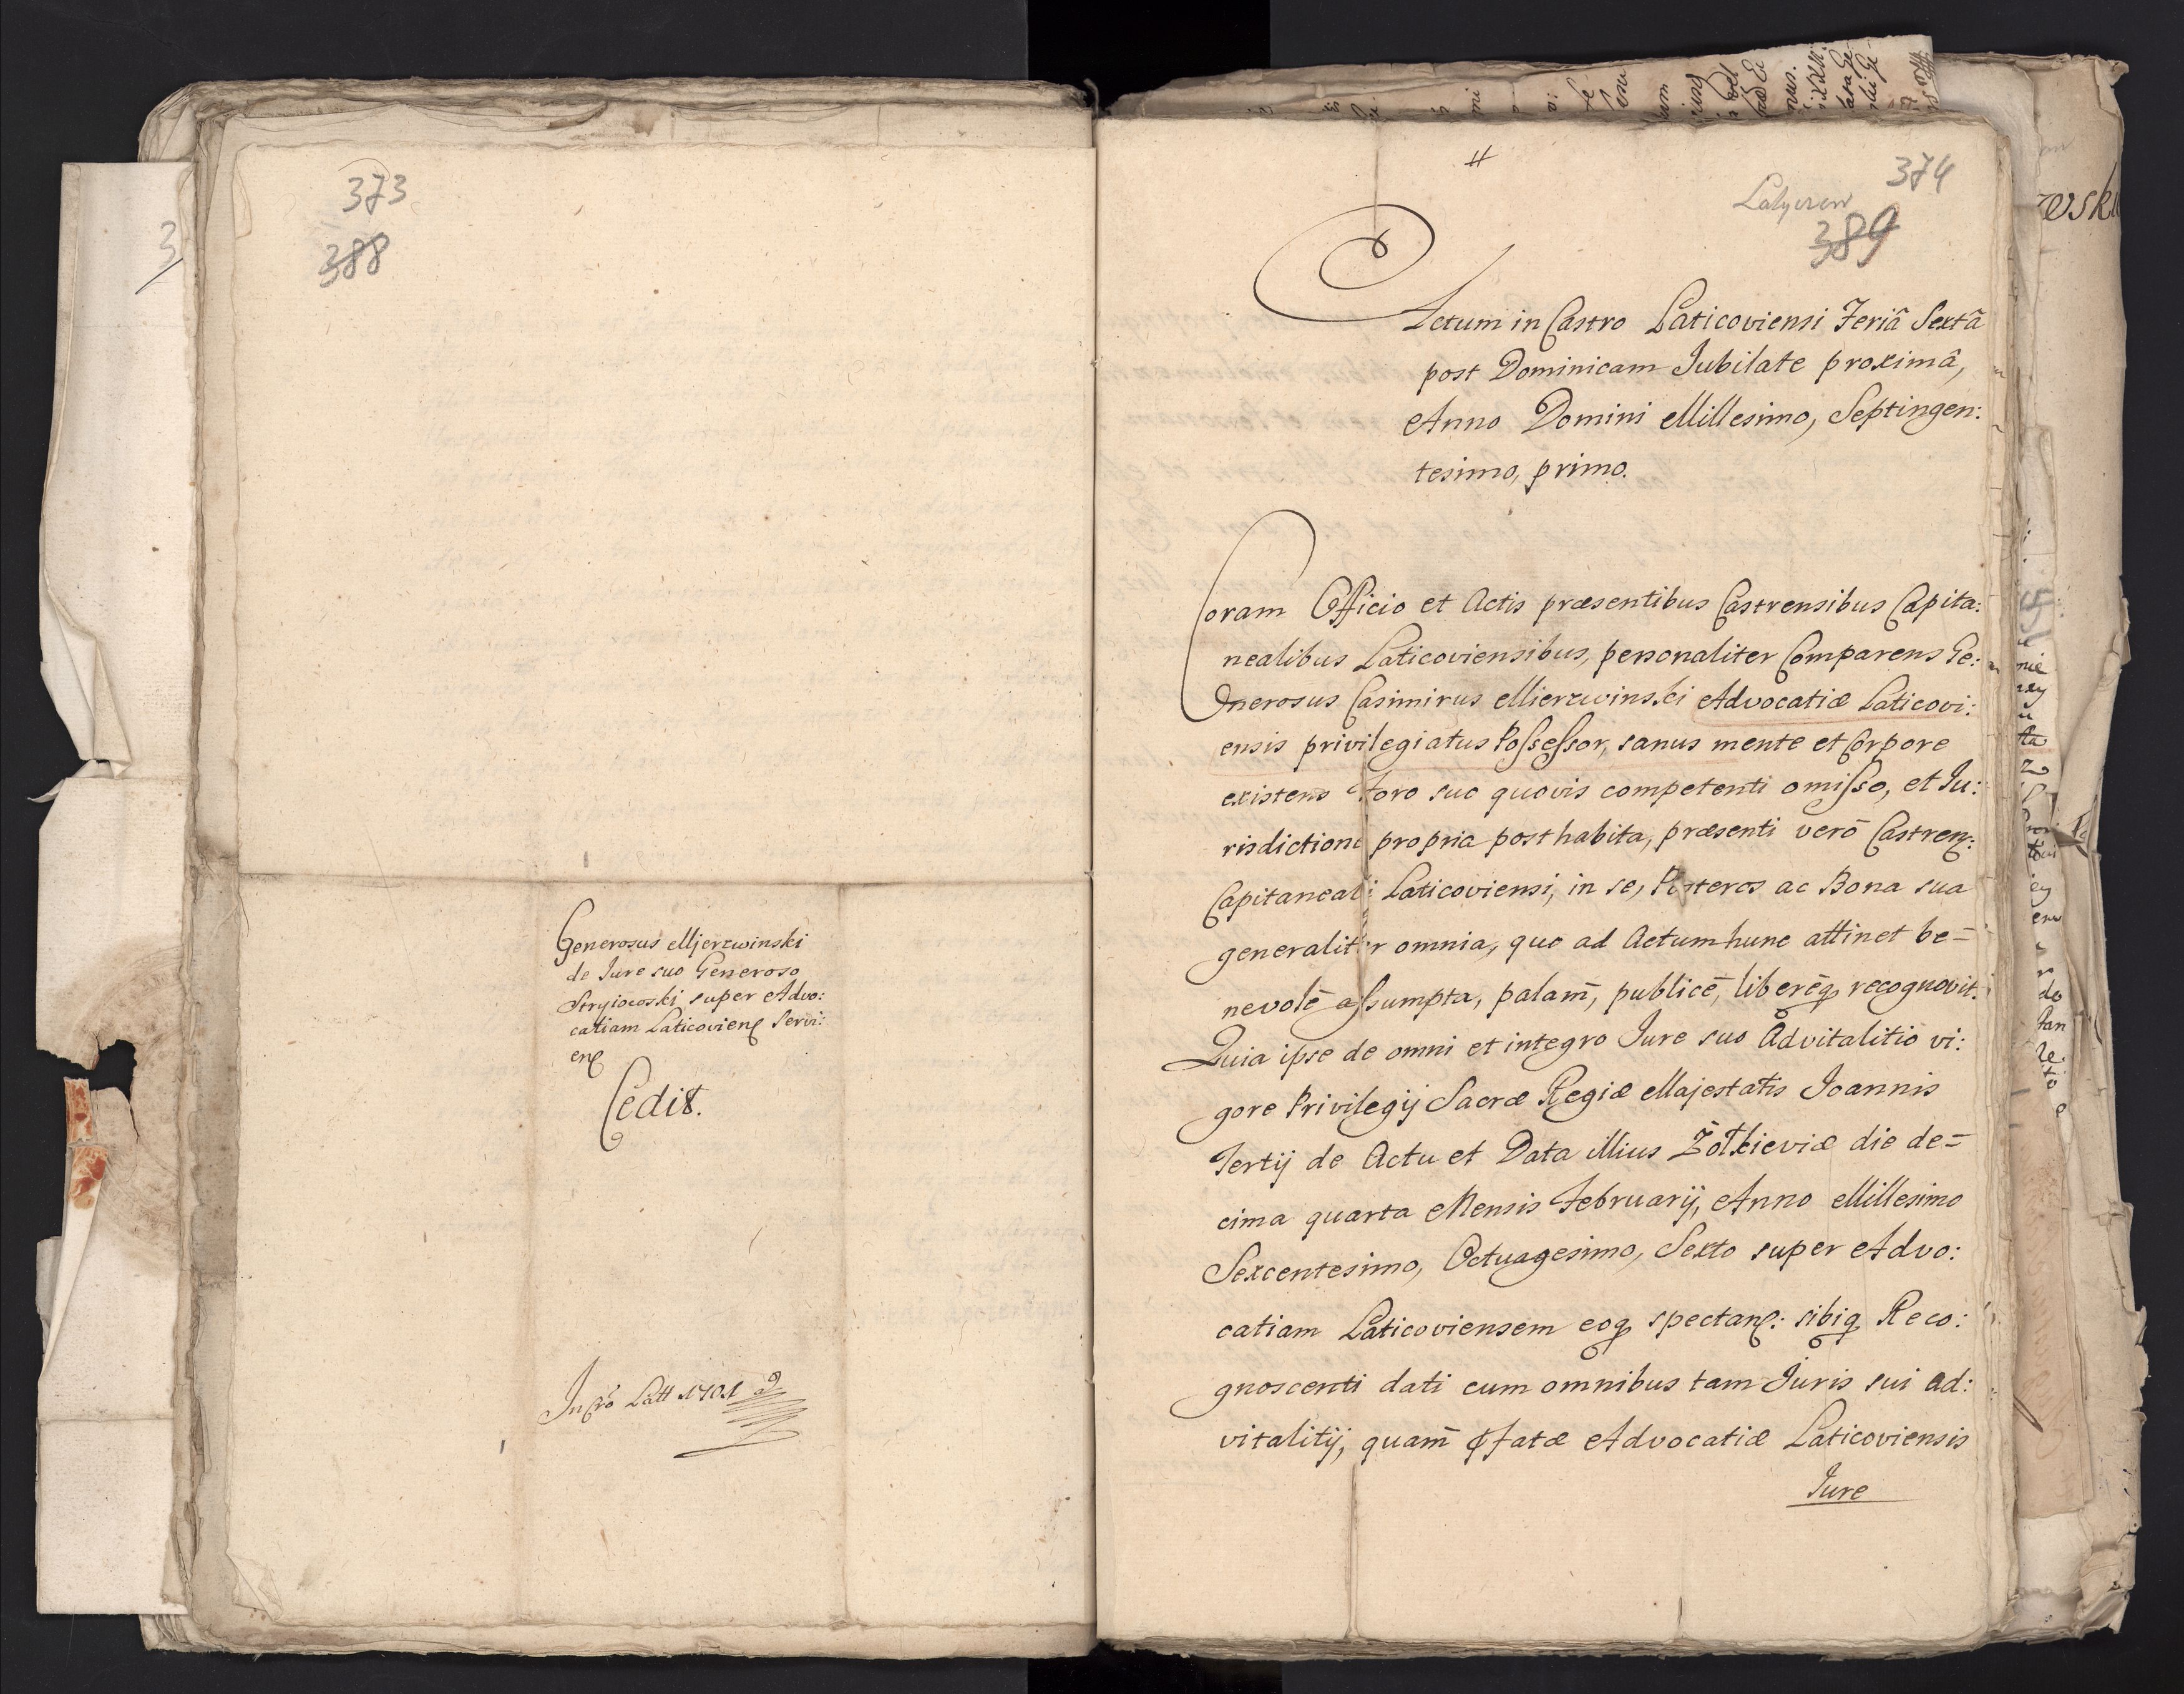 373
388
Generosus Mierzwinski
de Jure suo Generoso
Stryiowski super Advo:
catiam Laticovien̄ servi:
en̄
Cedit.
In Cro Latt 1701
374
Latyczow
389
Actum in Castro Laticoviensi Feriâ Sextâ
post Dominicam Jubilate proximâ,
Anno Domini Millesimo, Septingen:
tesimo, primo.
Coram Officio et Actis præsentibus Castrensibus Capita:
nealibus Laticoviensibus, personaliter Comparens Ge:
nerosus Casimirus Mierzwinski Advocatiæ Laticovi:
ensis privilegiatus Poſseſsor, sanus mente et Corpore
existens foro suo quovis competenti omiſso, et Ju:
risdictione propria posthabita, præsenti verò Castren:
Capitaneali Laticoviensi, in se, Posteros ac Bona sua
generaliter omnia, quo ad Actum hunc attinet be=
nevolè aſsumpta, palam̄, publicè, liberèq recognovit.
Quia ipse de omni et integro Jure suo Advitalitio vi:
gore Privilegij Sacræ Regiæ Majestatis Joannis
Tertij de Actu et Data illius Żołkieviæ die de=
cima quarta Mensis February, Anno Millesimo
Sexcentesimo, Octuagesimo, Sexto super Advo:
catiam Laticoviensem eoq spectan: sibiq Reco:
gnoscenti dati cum omnibus tam Juris sui ad:
vitalitij, quam̄ ꝓfatæ Advocatiæ Laticoviensis
Jure